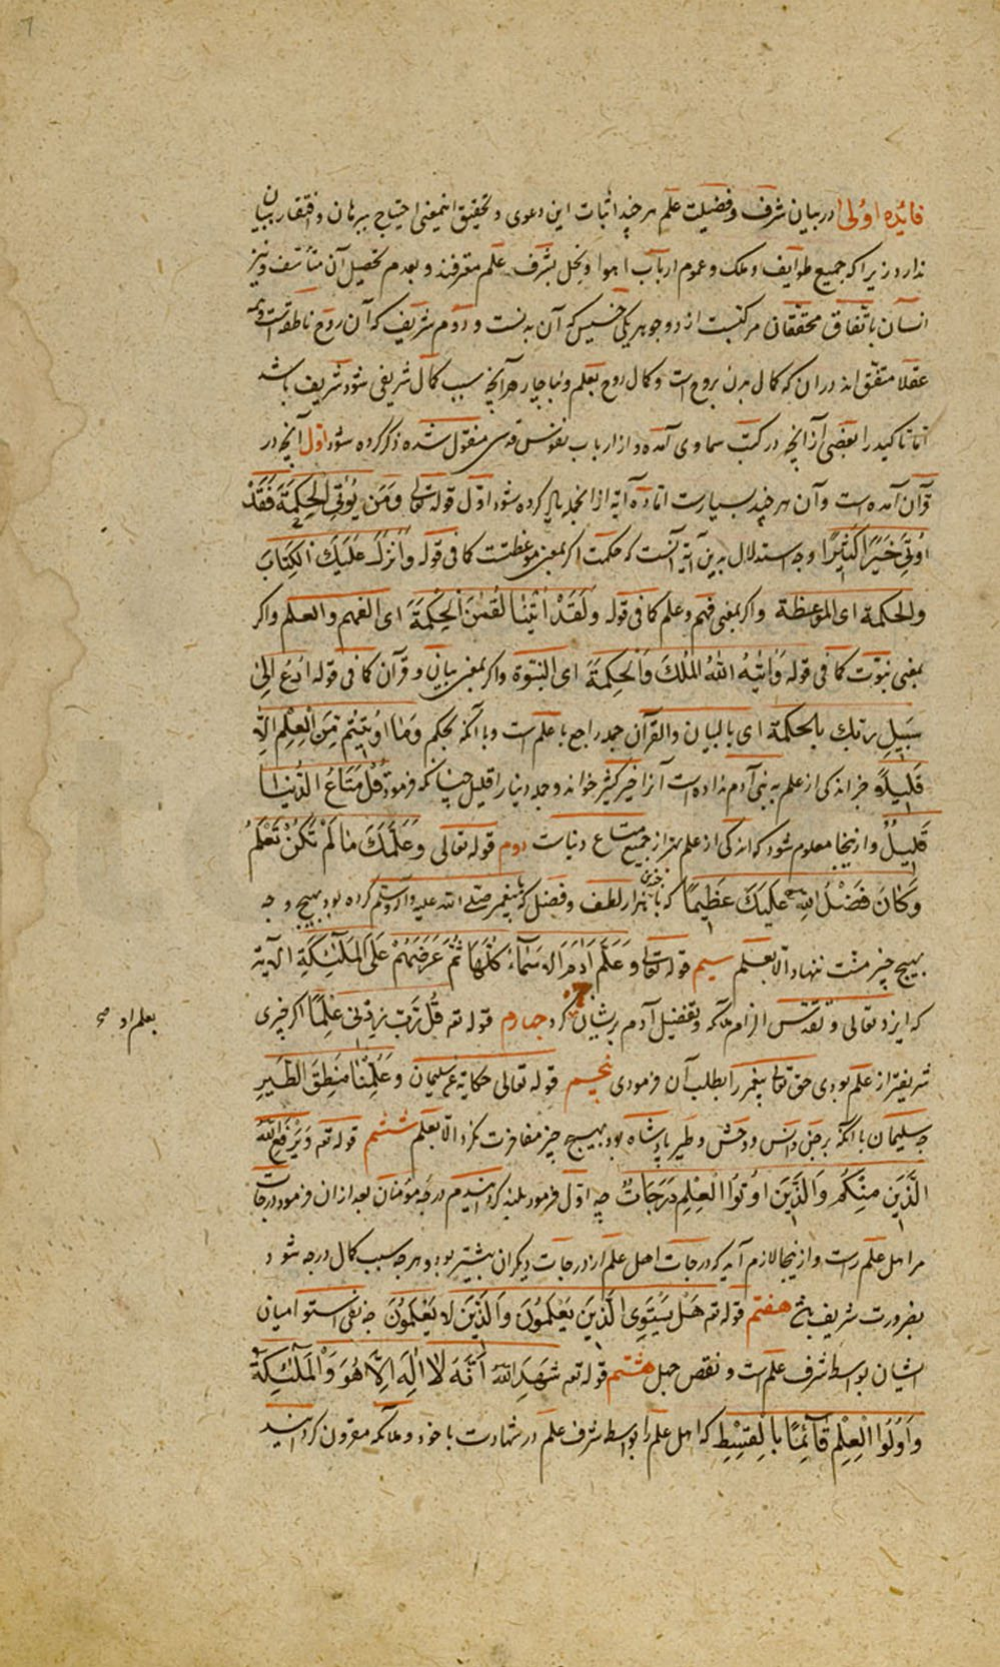 فایدهٔ اولی در بیان شرف و فضیلت علم هر چند اثبات این دعوی و تحقیق اینمعنی احتیاج ببرهان و افتقار ببیان
ندارد زیرا که جمیع طوایف و ملک و عموم ارباب اهوا و نحل بشرف علم معترفند و بعدم تحصیل آن متأسف و نیز
انسان باتفاق محققان مرکبست از دو جوهر یکی خسیس که آن بدنست و دوم شریف که آن روح ناطقه است و همه
عقلا متفق اند در ان که کمال بدن بروح است و کمال روح بعلم و بناچار هر آنچه سبب کمال شریفی شود شریف باشد
اما تاکید را بعضی از آنچه در کتب سماوی آمده و از ارباب نفوس قدسی منقول شده ذکر کرده شود اول آنچه در
قرآن آمده است و آن هر چند بسیارست اما ده آیه از انجمله یاد کرده شود اول قوله تعالی وَمَن يُؤتِي الْحِكمَةَ فَقَدْ
اُوتِيَ خَيْرًا كَثِيرًا وجه استدلال بدین آیه آنست که حکمت اگر بمعنی موعظتست کما فی قوله وَاَنْزَلَ عَلَيْكَ الكِتَابَ
والحكمة ای الموعظة و اگر بمعنی فهم و علم کما فی قوله وَلَقَدْ اٰتَيْنَا لُقْمٰنَ الحِكْمَةَ ای الفهم والعلم و اگر
بمعنی نبوت کما فی قوله وَاٰتٰيهُ اللّٰهُ الْمُلْكَ وَالْحِكْمَةَ ای النبوة و اگر بمعنی بیان و قرآن کما فی قوله اُدْعُ اِلٰى
سَبِيلِ رَبِّك بالحكمة ای بالبيان والقرآن جمله راجع با علم است و با آنکه بحکم وَمَا اُوتِيتُم مِّنَ الْعِلْمِ اِلَّا
قَلِيلًا جز اندکی از علم به بنی آدم نداده است آنرا خیر کثیر خوانده و جمله دنیا را قلیل چنانکه فرمود قُلْ مَتَاعُ الدُّنْيَا
قَلِيلٌ و از ینجا معلوم شود که اندکی از علم بهتر از جمیع متاع دنیاست دوم قوله تعالی وَعَلَّمَكَ مَا لَمْ تَكُنْ تَعْلَمُ
وَكَانَ فَضْلُ اللّٰهِ عَلَيْكَ عَظِيمًا که با چندین هزار لطف و فضل که با پیغمبر صلی الله علیه و آله و سلم کرده بود بهیچ وجه
بهیچ چیز منت ننهاد الا بعلم سیم قوله تعالی وَعَلَّمَ اٰدَمَ الاَسْمَآءَ كُلَّهَا ثُمَّ عَرَضَهُمْ عَلَى الْمَلٰئِكَةِ الآية
که ایزد تعالی و تقدس الزام ملائکه و تفضیل آدم بریشان کرد چهارم قوله تعم قُل رَّبِّ زِدْنِي عِلْمًا اگر چیزی
بعلم او صح
شریفتر از علم بودی حق تعالی پیغمبر را بطلب آن فرمودی پنجم قوله تعالی حکایة عن سلیمان وَعُلِّمْنَا مَنطِقَ الطَّيْرِ
چه سلیمان با آنکه بر جن و انس و وحش و طیر پادشاه بود بهیچ چیز مفاخرت نکرد الا بعلم ششم قوله تعم وَيَرْفَعِ اللّٰهُ
الَّذِينَ مِنكُمْ وَالَّذِينَ اُوتُوا الْعِلْمَ دَرَجَاتٍ چه اول فرمود بلند گردانیدم درجه مؤمنان بعد از ان فرمود درجات
مر اهل علم راست و از ینجا لازم آید که درجات اهل علم از درجات دیگران بیشتر بود و هر چه سبب کمال درجه شود
بضرورت شریف باشد هفتم قوله تعم هَلْ يَسْتَوِى الَّذِينَ يَعْلَمُونَ وَالَّذِينَ لَا يَعْلَمُونَ چه نفی استوا میان
ایشان بواسطه شرف علم است و نقص جهل هشتم قوله تعم شَهِدَ اللّٰهُ اَنَّهُ لَا اِلٰهَ اِلَّا هُوَ وَالْمَلٰئِكَةُ
وَاُولُوا الْعِلْمِ قَآئِمًا بِالْقِسْطِ که اهل علم را بواسطه شرف علم در شهادت با خود و ملائکه مقرون گردانید